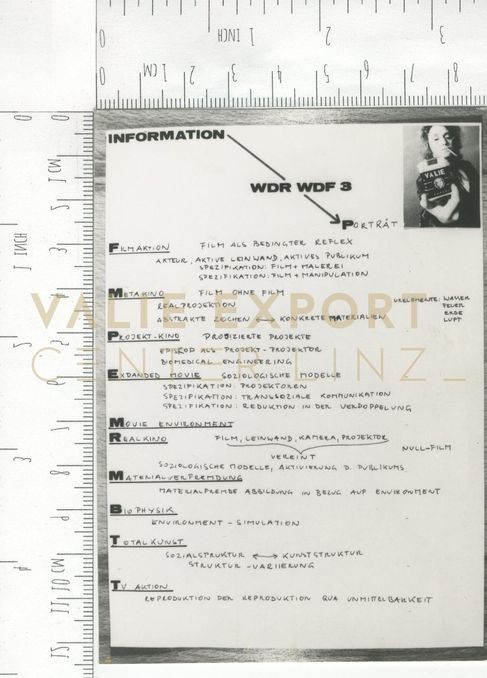 INFORMATION
WDR WDF 3
PORTRÄT
VALIE
FILMAKTION FILM ALS BEDINGTER REFLEX
AKTEUR, AKTIVE LEINWAND, AKTIVES PUBLIKUM
SPEZIFIKATION: FILM + MALEREI
SPEZIFIKATION: FILM + MANIPULATION
METAKINO FILM OHNE FILM
REALPROJEKTION
ABSTRAKTE ZEICHEN ↔ KONKRETE MATERIALIEN
URELEMENTE: WASSER
FEUER
ERDE
LUFT
VALIE EXPORT
CENTER LINZ_
PROJEKT-KINO PROJIZIERTE PROJEKTE
EPISKOP ALS PROJEKT-PROJEKTOR
BIOMEDICAL ENGINEERING
EXPANDED MOVIE SOZIOLOGISCHE MODELLE
SPEZIFIKATION: PROJEKTOREN
SPEZIFIKATION: TRANSSOZIALE KOMMUNIKATION
SPEZIFIKATION: REDUKTION IN DER VERDOPPELUNG
MOVIE ENVIRONMENT
REALKINO FILM, LEINWAND, KAMERA, PROJEKTOR
VEREINT
NULL-FILM
SOZIOLOGISCHE MODELLE, AKTIVIERUNG D. PUBLIKUMS
MATERIALVERFREMDUNG
MATERIALFREMDE ABBILDUNG IN BEZUG AUF ENVIRONMENT
BIOPHYSIK
ENVIRONMENT - SIMULATION
TOTALKUNST
SOZIALSTRUKTUR ↔ KUNSTSTRUKTUR
STRUKTUR - VARIIERUNG
TV AKTION
REPRODUKTION DER REPRODUKTION QUA UNMITTELBARKEIT
0 1 INCH 1 2 3
0 1 CM 2 3 4 5 6 7 8